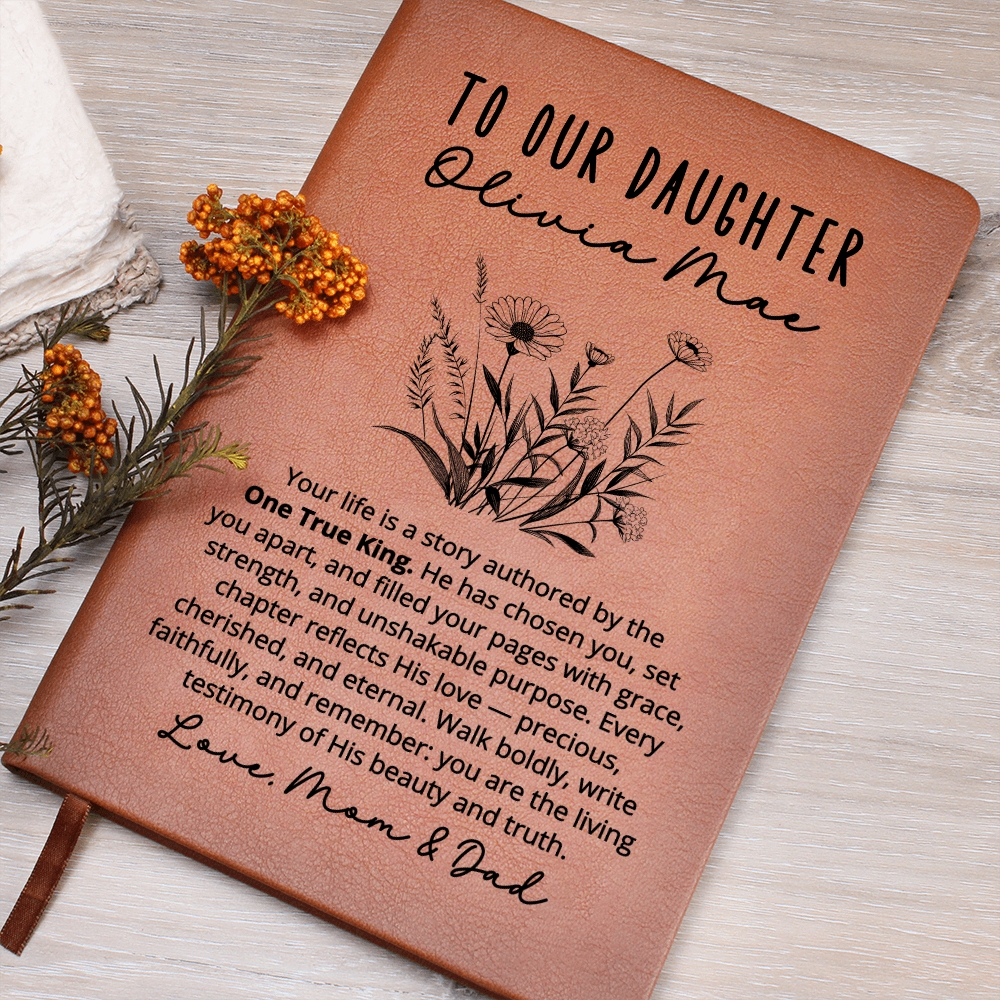 TO OUR DAUGHTER
Olivia Mae
Your life is a story authored by the
One True King. He has chosen you, set
you apart, and filled your pages with grace,
strength, and unshakable purpose. Every
chapter reflects His love — precious,
cherished, and eternal. Walk boldly, write
faithfully, and remember: you are the living
testimony of His beauty and truth.
Love, Mom & Dad